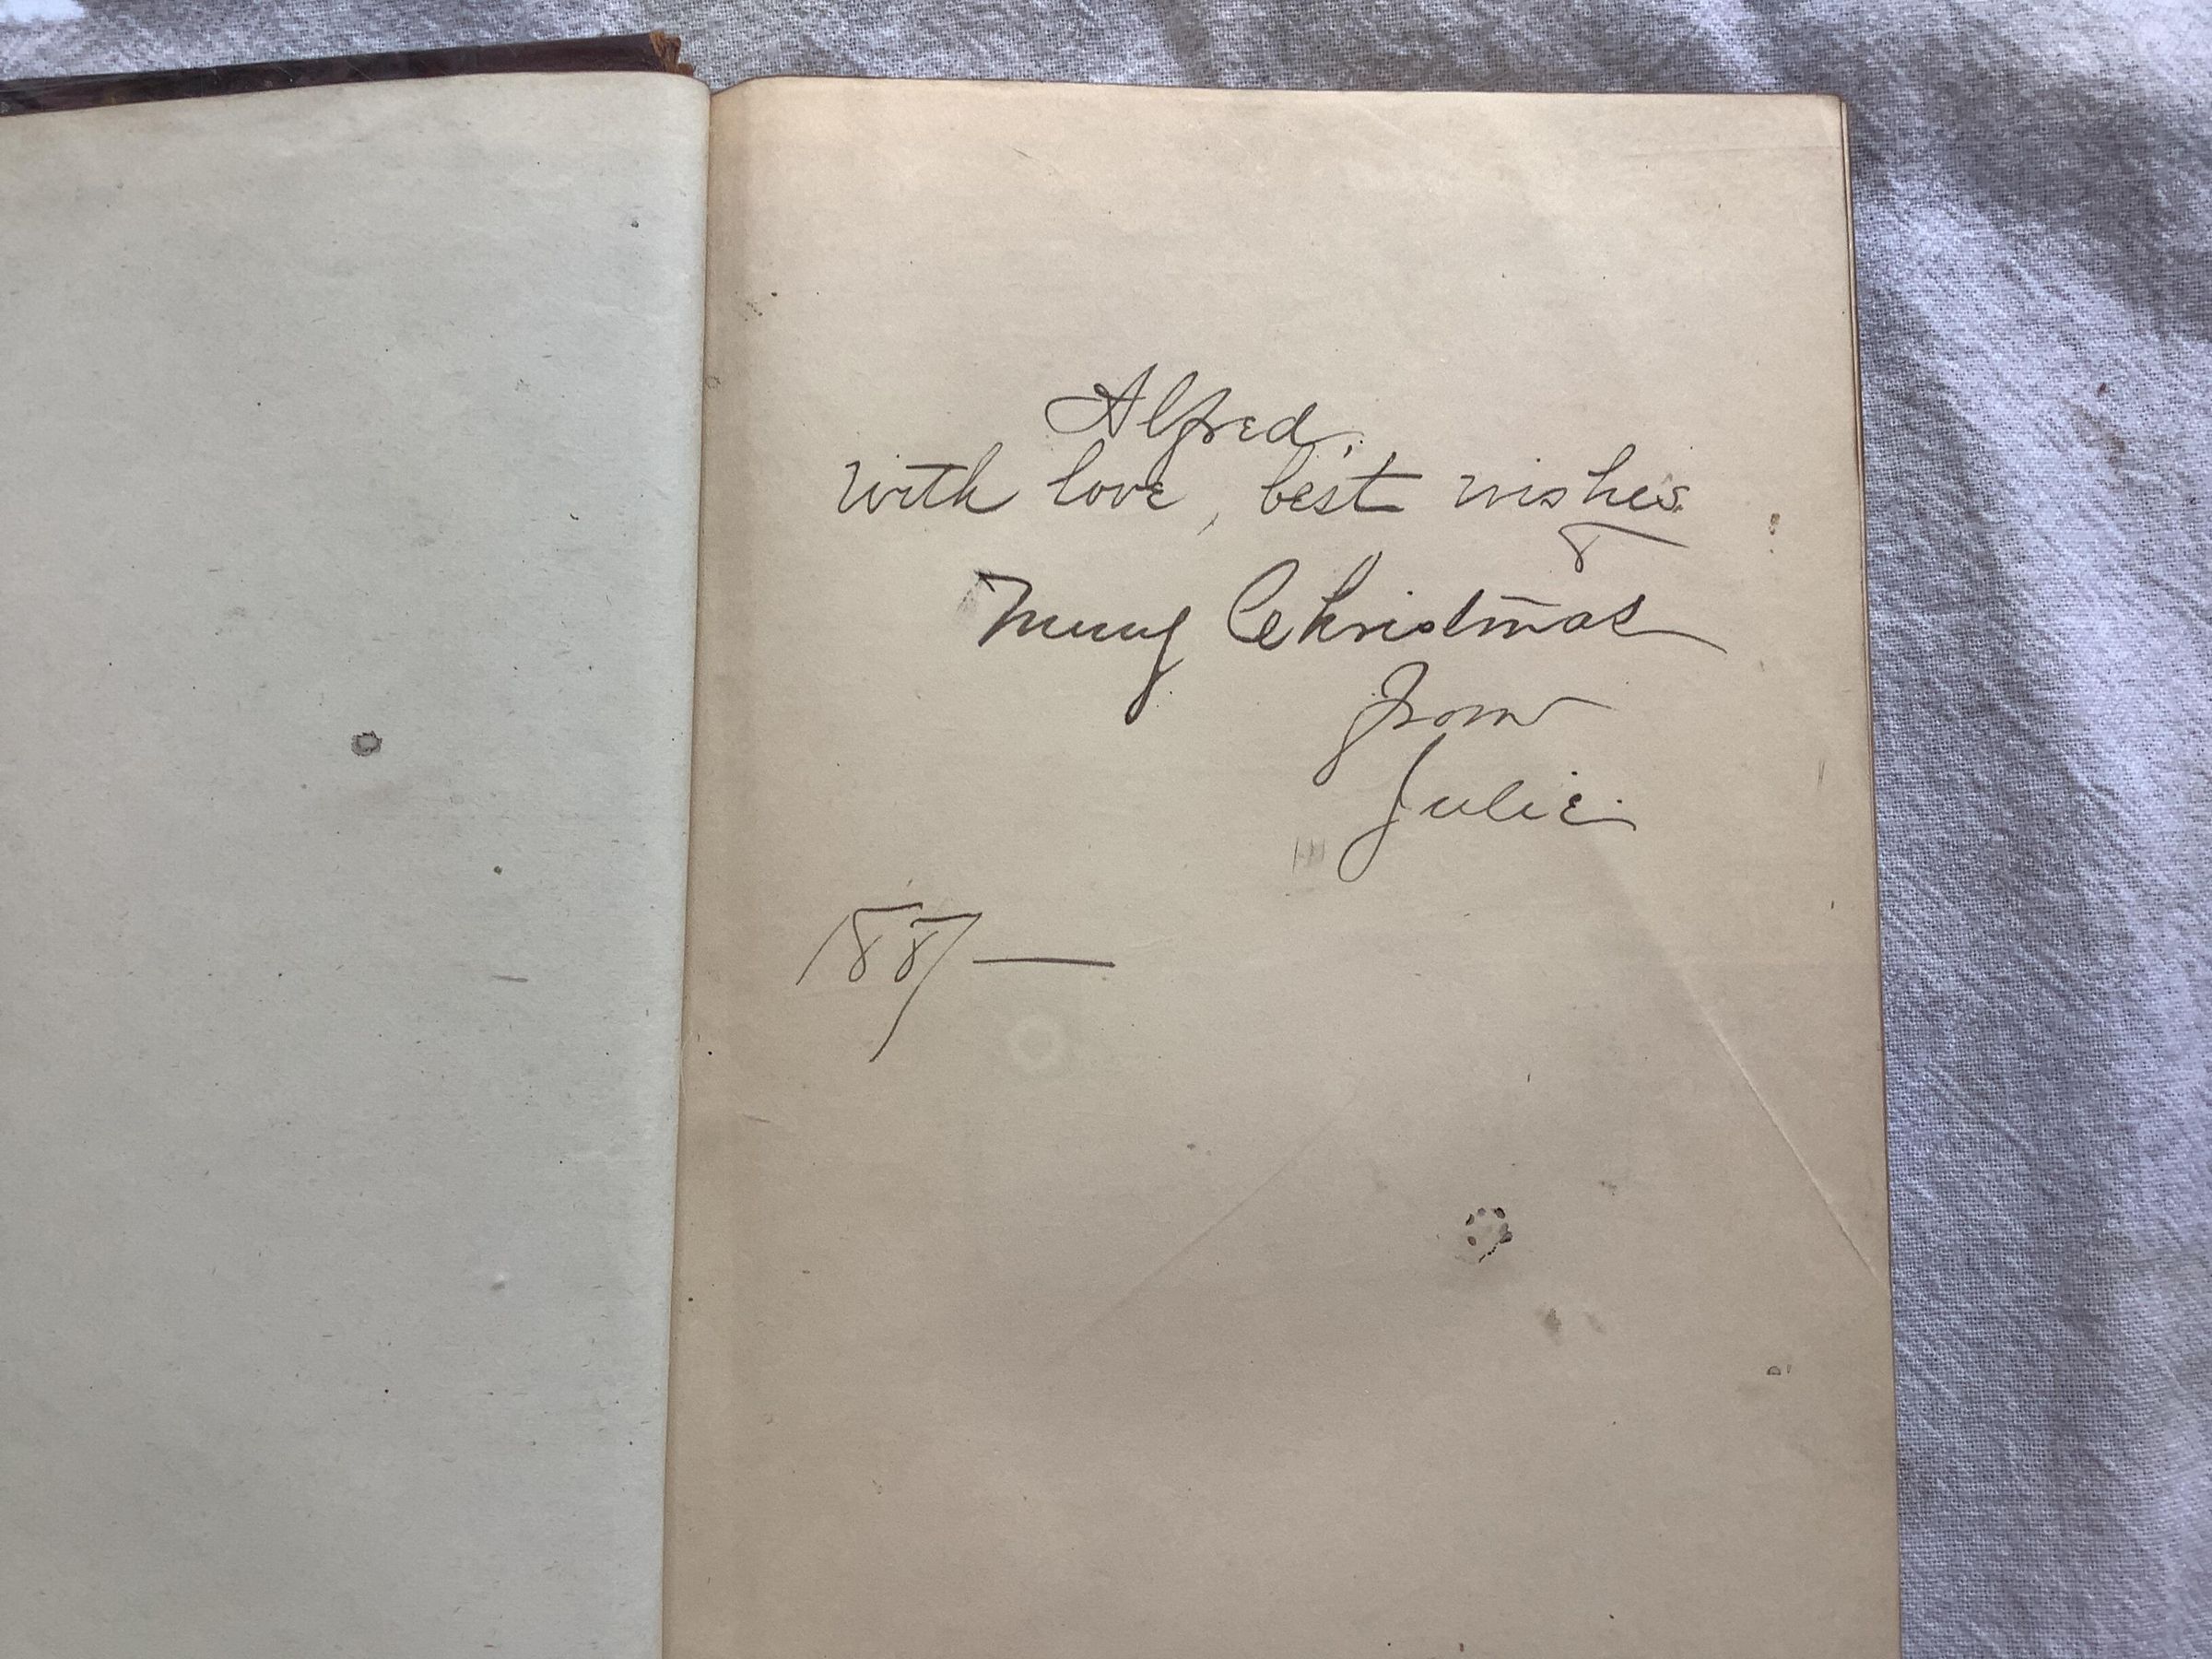 Alfred.
with love, best wishes.
&
Merry Christmas
from
Julie.
1887—